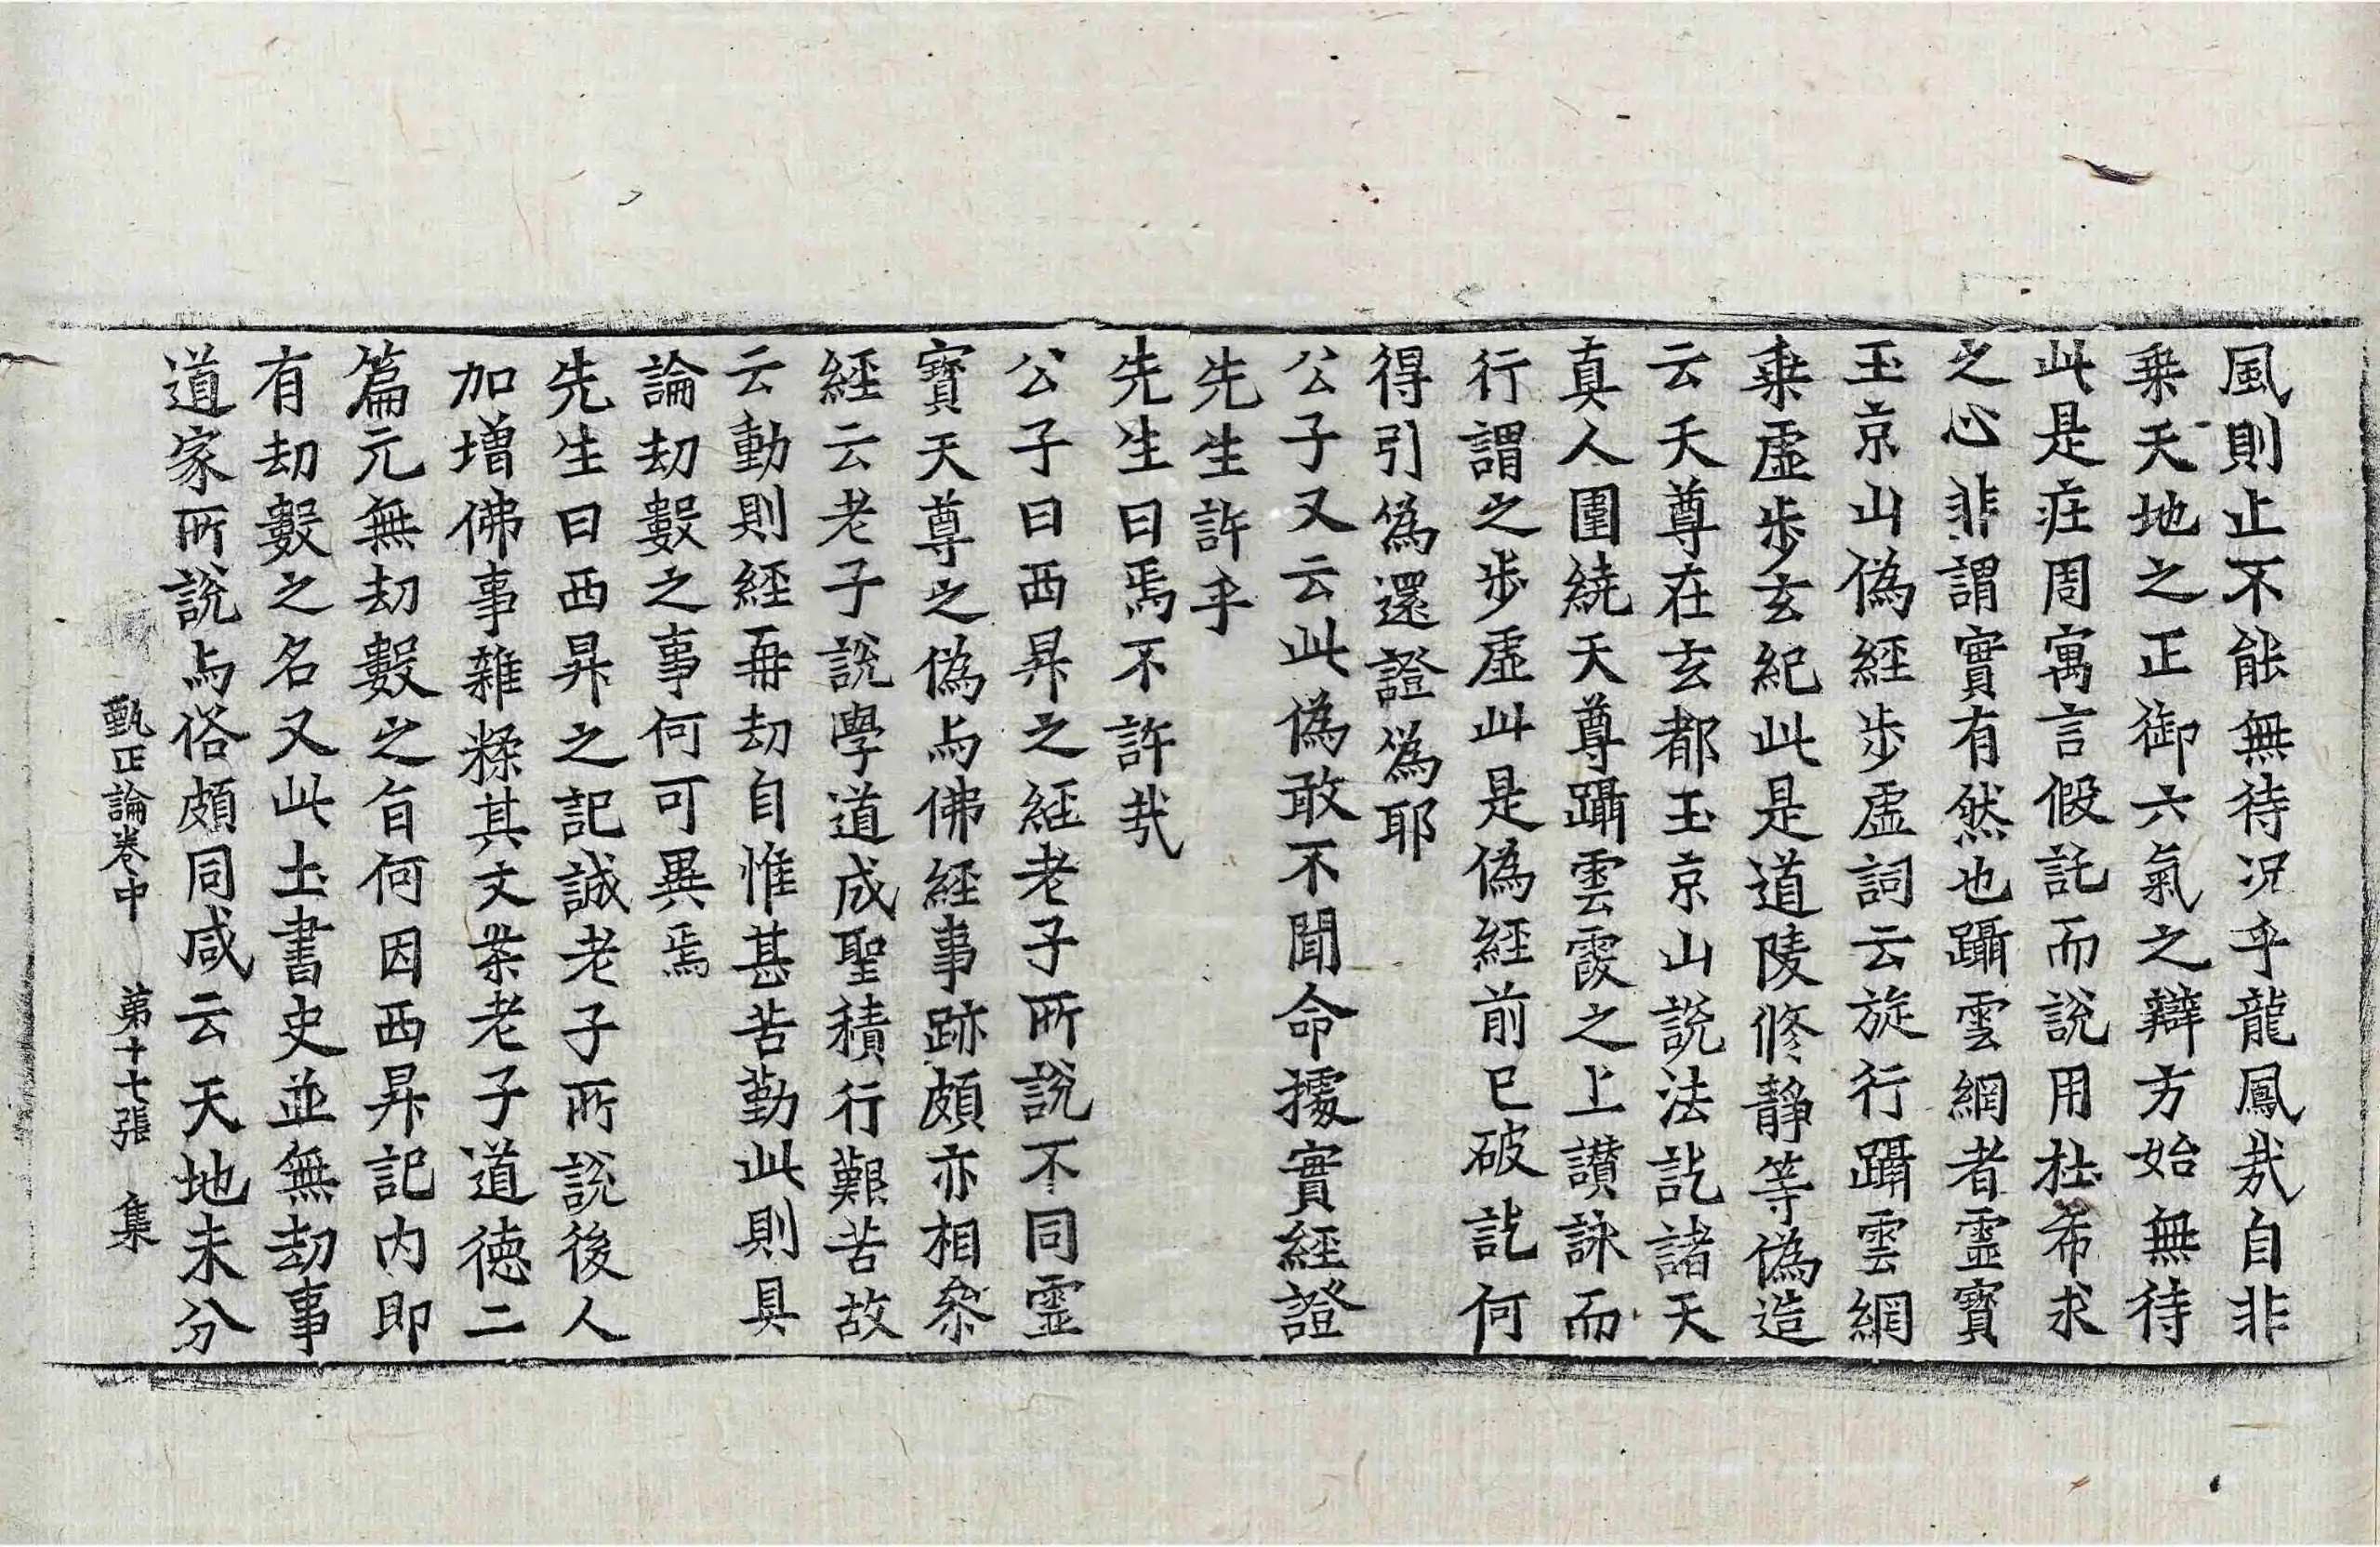 風則止不能無待況乎龍鳳㢤自非
乗天地之正御六氣之辯方始無待
此是庄周寓言假託而說用杜希求
之心非謂實有然也躡雲網者靈寶
玉京山偽經步虛詞云旋行躡雲網
乗虛步玄紀此是道陵修靜等偽造
云天尊在玄都玉京山說法訖諸天
真人圍繞天尊躡雲霞之上讃詠而
行謂之步虛此是偽經前已破訖何
得引為還證為耶
公子又云此偽敢不聞命據實經證
先生許乎
先生曰焉不許㢤
公子曰西昇之經老子所說不同靈
寶天尊之偽与佛經事跡頗亦相叅
經云老子說學道成聖積行艱苦故
云動則經毎劫自惟甚苦勤此則具
論劫數之事何可異焉
先生曰西昇之記誠老子所說後人
加增佛事雜糅其文案老子道德二
篇元無劫數之旨何因西昇記內即
有劫數之名又此土書史並無劫事
道家所說与俗頗同咸云天地未分
甄正論卷中　第十七張　集